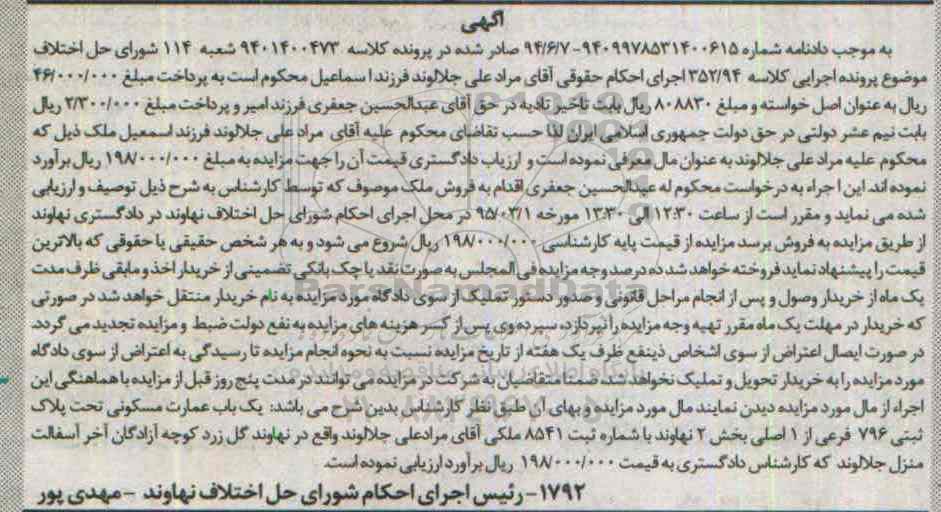 آگهی
به موجب دادنامه شماره ۹۴۰۹۹۷۸۵۳۱۴۰۰۶۱۵-۹۴/۶/۷ صادر شده در پرونده کلاسه ۹۴۰۱۴۰۰۴۷۳ شعبه ۱۱۴ شورای حل اختلاف
موضوع پرونده اجرایی کلاسه ۳۵۲/۹۴ اجرای احکام حقوقی آقای مراد علی جلالوند فرزند اسماعیل محکوم است به پرداخت مبلغ ۴۶/۰۰۰/۰۰۰
ریال به عنوان اصل خواسته و مبلغ ۸۰۸۸۳۰ ریال بابت تاخیر تادیه در حق آقای عبدالحسین جعفری فرزند امیر و پرداخت مبلغ ۲/۳۰۰/۰۰۰ ریال
بابت نیم عشر دولتی در حق دولت جمهوری اسلامی ایران لذا حسب تقاضای محکوم علیه آقای مراد علی جلالوند فرزند اسمعیل ملک ذیل که
محکوم علیه مراد علی جلالوند به عنوان مال معرفی نموده است و ارزیاب دادگستری قیمت آن را جهت مزایده به مبلغ ۱۹۸/۰۰۰/۰۰۰ ریال برآورد
نموده اند این اجراء به درخواست محکوم له عبدالحسین جعفری اقدام به فروش ملک موصوف که توسط کارشناس به شرح ذیل توصیف و ارزیابی
شده می نماید و مقرر است از ساعت ۱۲:۳۰ الی ۱۳:۳۰ مورخه ۹۵/۰۳/۱ در محل اجرای احکام شورای حل اختلاف نهاوند در دادگستری نهاوند
از طریق مزایده به فروش برسد مزایده از قیمت پایه کارشناسی ۱۹۸/۰۰۰/۰۰۰ ریال شروع می شود و به هر شخص حقیقی یا حقوقی که بالاترین
قیمت را پیشنهاد نماید فروخته خواهد شد ده درصد وجه مزایده فی المجلس به صورت نقد یا چک بانکی تضمینی از خریدار اخذ و مابقی ظرف مدت
یک ماه از خریدار وصول و پس از انجام مراحل قانونی و صدور دستور تملیک از سوی دادگاه مورد مزایده به نام خریدار منتقل خواهد شد در صورتی
که خریدار در مهلت یک ماه مقرر تهیه وجه مزایده را نپردازد، سپرده وی پس از کسر هزینه های مزایده به نفع دولت ضبط و مزایده تجدید می گردد.
در صورت ایصال اعتراض از سوی اشخاص ذینفع ظرف یک هفته از تاریخ مزایده نسبت به نحوه انجام مزایده تا رسیدگی به اعتراض از سوی دادگاه
مورد مزایده را به خریدار تحویل و تملیک نخواهد شد ضمنا متقاضیان به شرکت در مزایده می توانند در مدت پنج روز قبل از مزایده با هماهنگی این
اجراء از مال مورد مزایده دیدن نمایند مال مورد مزایده و بهای آن طبق نظر کارشناس بدین شرح می باشد: یک باب عمارت مسکونی تحت پلاک
ثبتی ۷۹۶ فرعی از ۱ اصلی بخش ۲ نهاوند با شماره ثبت ۸۵۴۱ ملکی آقای مرادعلی جلالوند واقع در نهاوند گل زرد کوچه آزادگان آخر آسفالت
منزل جلالوند که کارشناس دادگستری به قیمت ۱۹۸/۰۰۰/۰۰۰ ریال برآورد ارزیابی نموده است.
۱۷۹۲- رئیس اجرای احکام شورای حل اختلاف نهاوند - مهدی پور
ParsNamadData